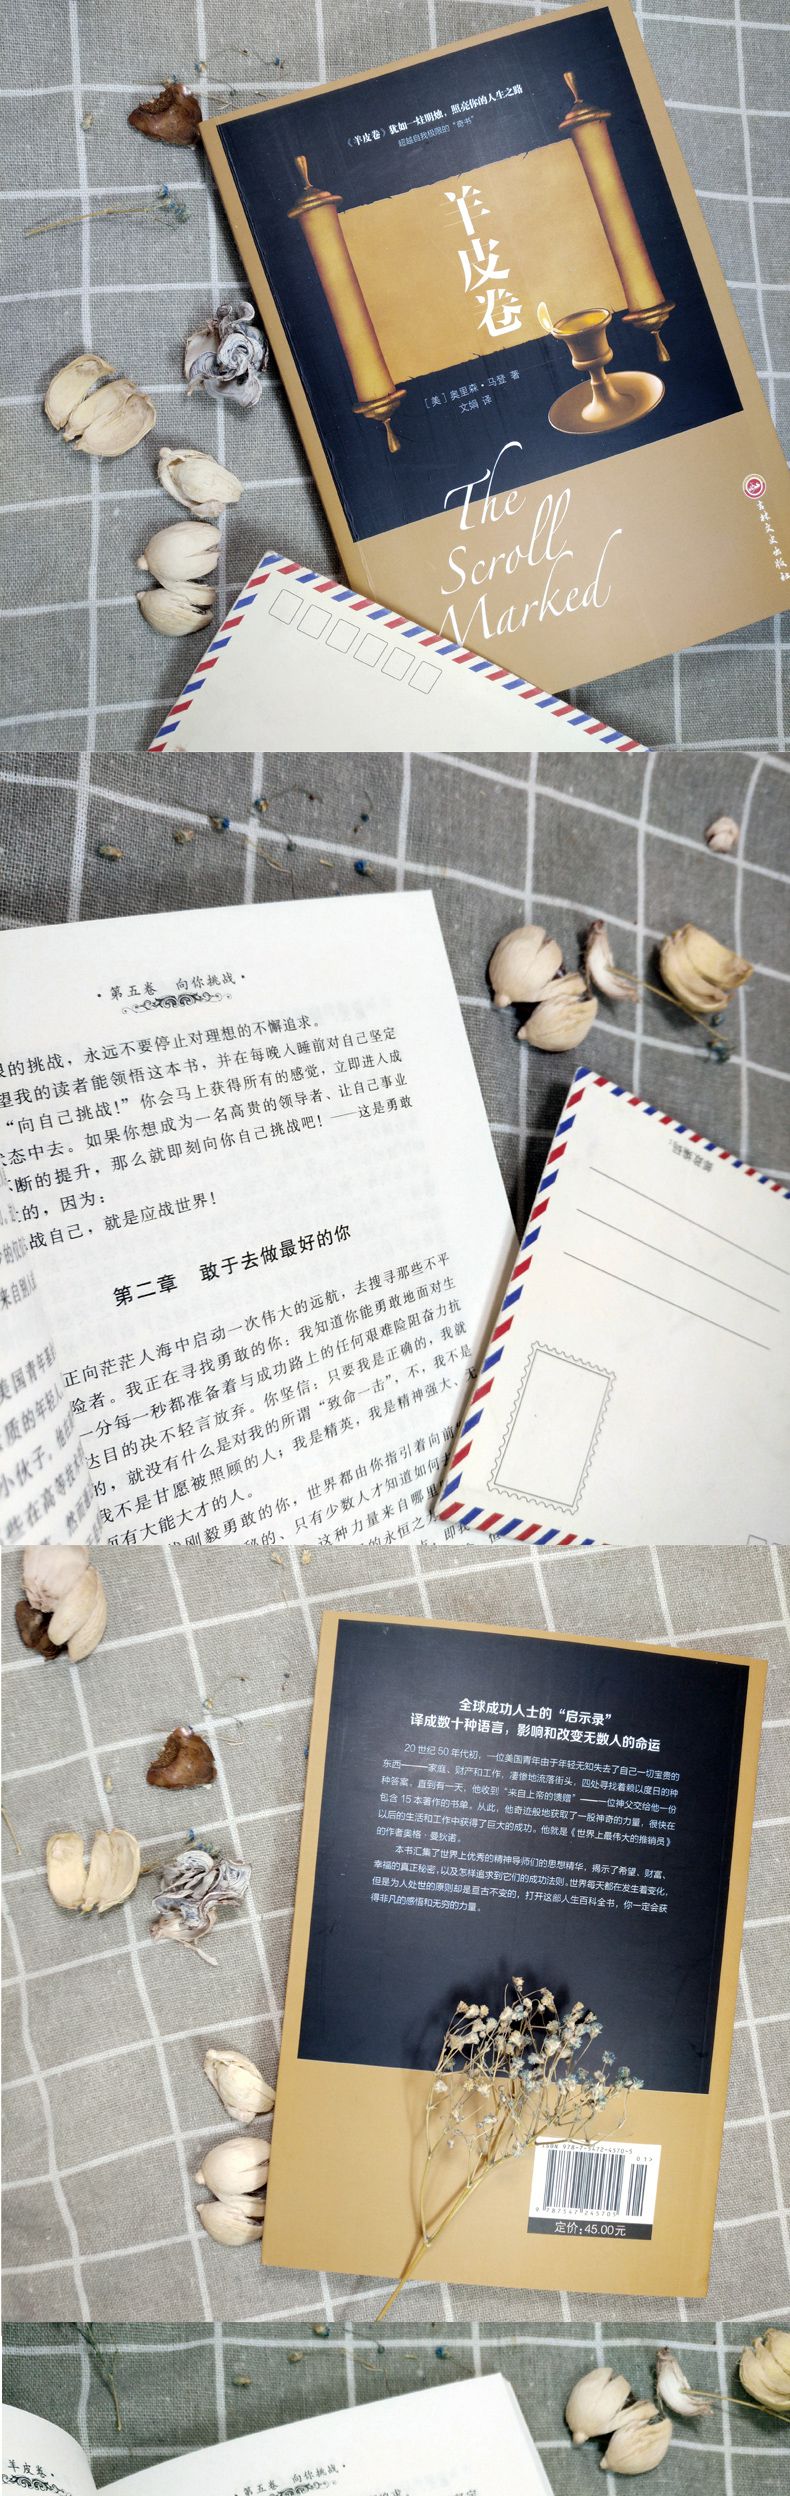 《羊皮卷》犹如一炷明烛，照亮你的人生之路
超越自我极限的“奇书”
羊皮卷
［美］奥里森·马登 著
文娟 译
The
Scroll
Marked
吉林文史出版社
·第五卷 向你挑战·
的挑战，永远不要停止对理想的不懈追求。
望我的读者能领悟这本书，并在每晚入睡前对自己坚定
“向自己挑战！”你会马上获得所有的感觉，立即进入成
态中去。如果你想成为一名高贵的领导者、让自己事业
断的提升，那么就即刻向你自己挑战吧！——这是勇敢
的，因为：
战自己，就是应战世界！
第二章 敢于去做最好的你
正向茫茫人海中启动一次伟大的远航，去搜寻那些不平
险者。我正在寻找勇敢的你：我知道你能勇敢地面对生
一分每一秒都准备着与成功路上的任何艰难险阻奋力抗
达目的决不轻言放弃。你坚信：只要我是正确的，我就
的，就没有什么是对我的所谓“致命一击”，不，我不是
我不是甘愿被照顾的人；我是精英，我是精神强大、无
而有大能大才的人。
刚毅勇敢的你，世界都由你指引着向前
秘的、只有少数人才知道如何
这种力量来自哪里
的永恒之
美国青年
质的年轻
小伙子。他
些在高等技
邮政编码：
全球成功人士的“启示录”
译成数十种语言，影响和改变无数人的命运
20世纪50年代初，一位美国青年由于年轻无知失去了自己一切宝贵的
东西——家庭、财产和工作，凄惨地流落街头，四处寻找着赖以度日的种
种答案，直到有一天，他收到“来自上帝的馈赠”——一位神父交给他一份
包含15本著作的书单。从此，他奇迹般地获取了一股神奇的力量，很快在
以后的生活和工作中获得了巨大的成功。他就是《世界上最伟大的推销员》
的作者奥格·曼狄诺。
本书汇集了世界上优秀的精神导师们的思想精华，揭示了希望、财富、
幸福的真正秘密，以及怎样追求到它们的成功法则。世界每天都在发生着变化，
但是为人处世的原则却是亘古不变的，打开这部人生百科全书，你一定会获
得非凡的感悟和无穷的力量。
ISBN 978-7-5472-4570-5
01>
9 787547 245705
定价：45.00元
羊皮卷·
·第五卷 向你挑战·